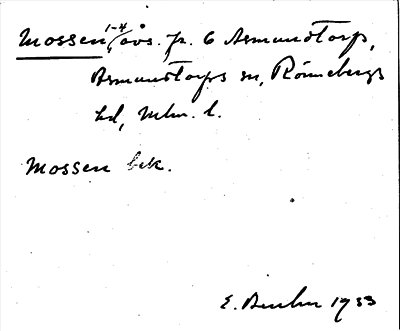 Mossen 1-4/, åvs. p. 6 Asmundtorp,
Asmundtorps sn, Rönnebergs
hd, Mlm. l.
Mossen bek.
E. 1933